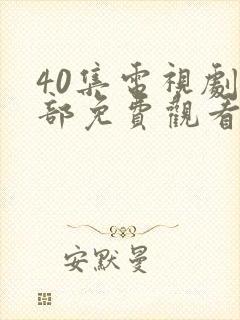 40集電視劇
部免費觀看
安默曼